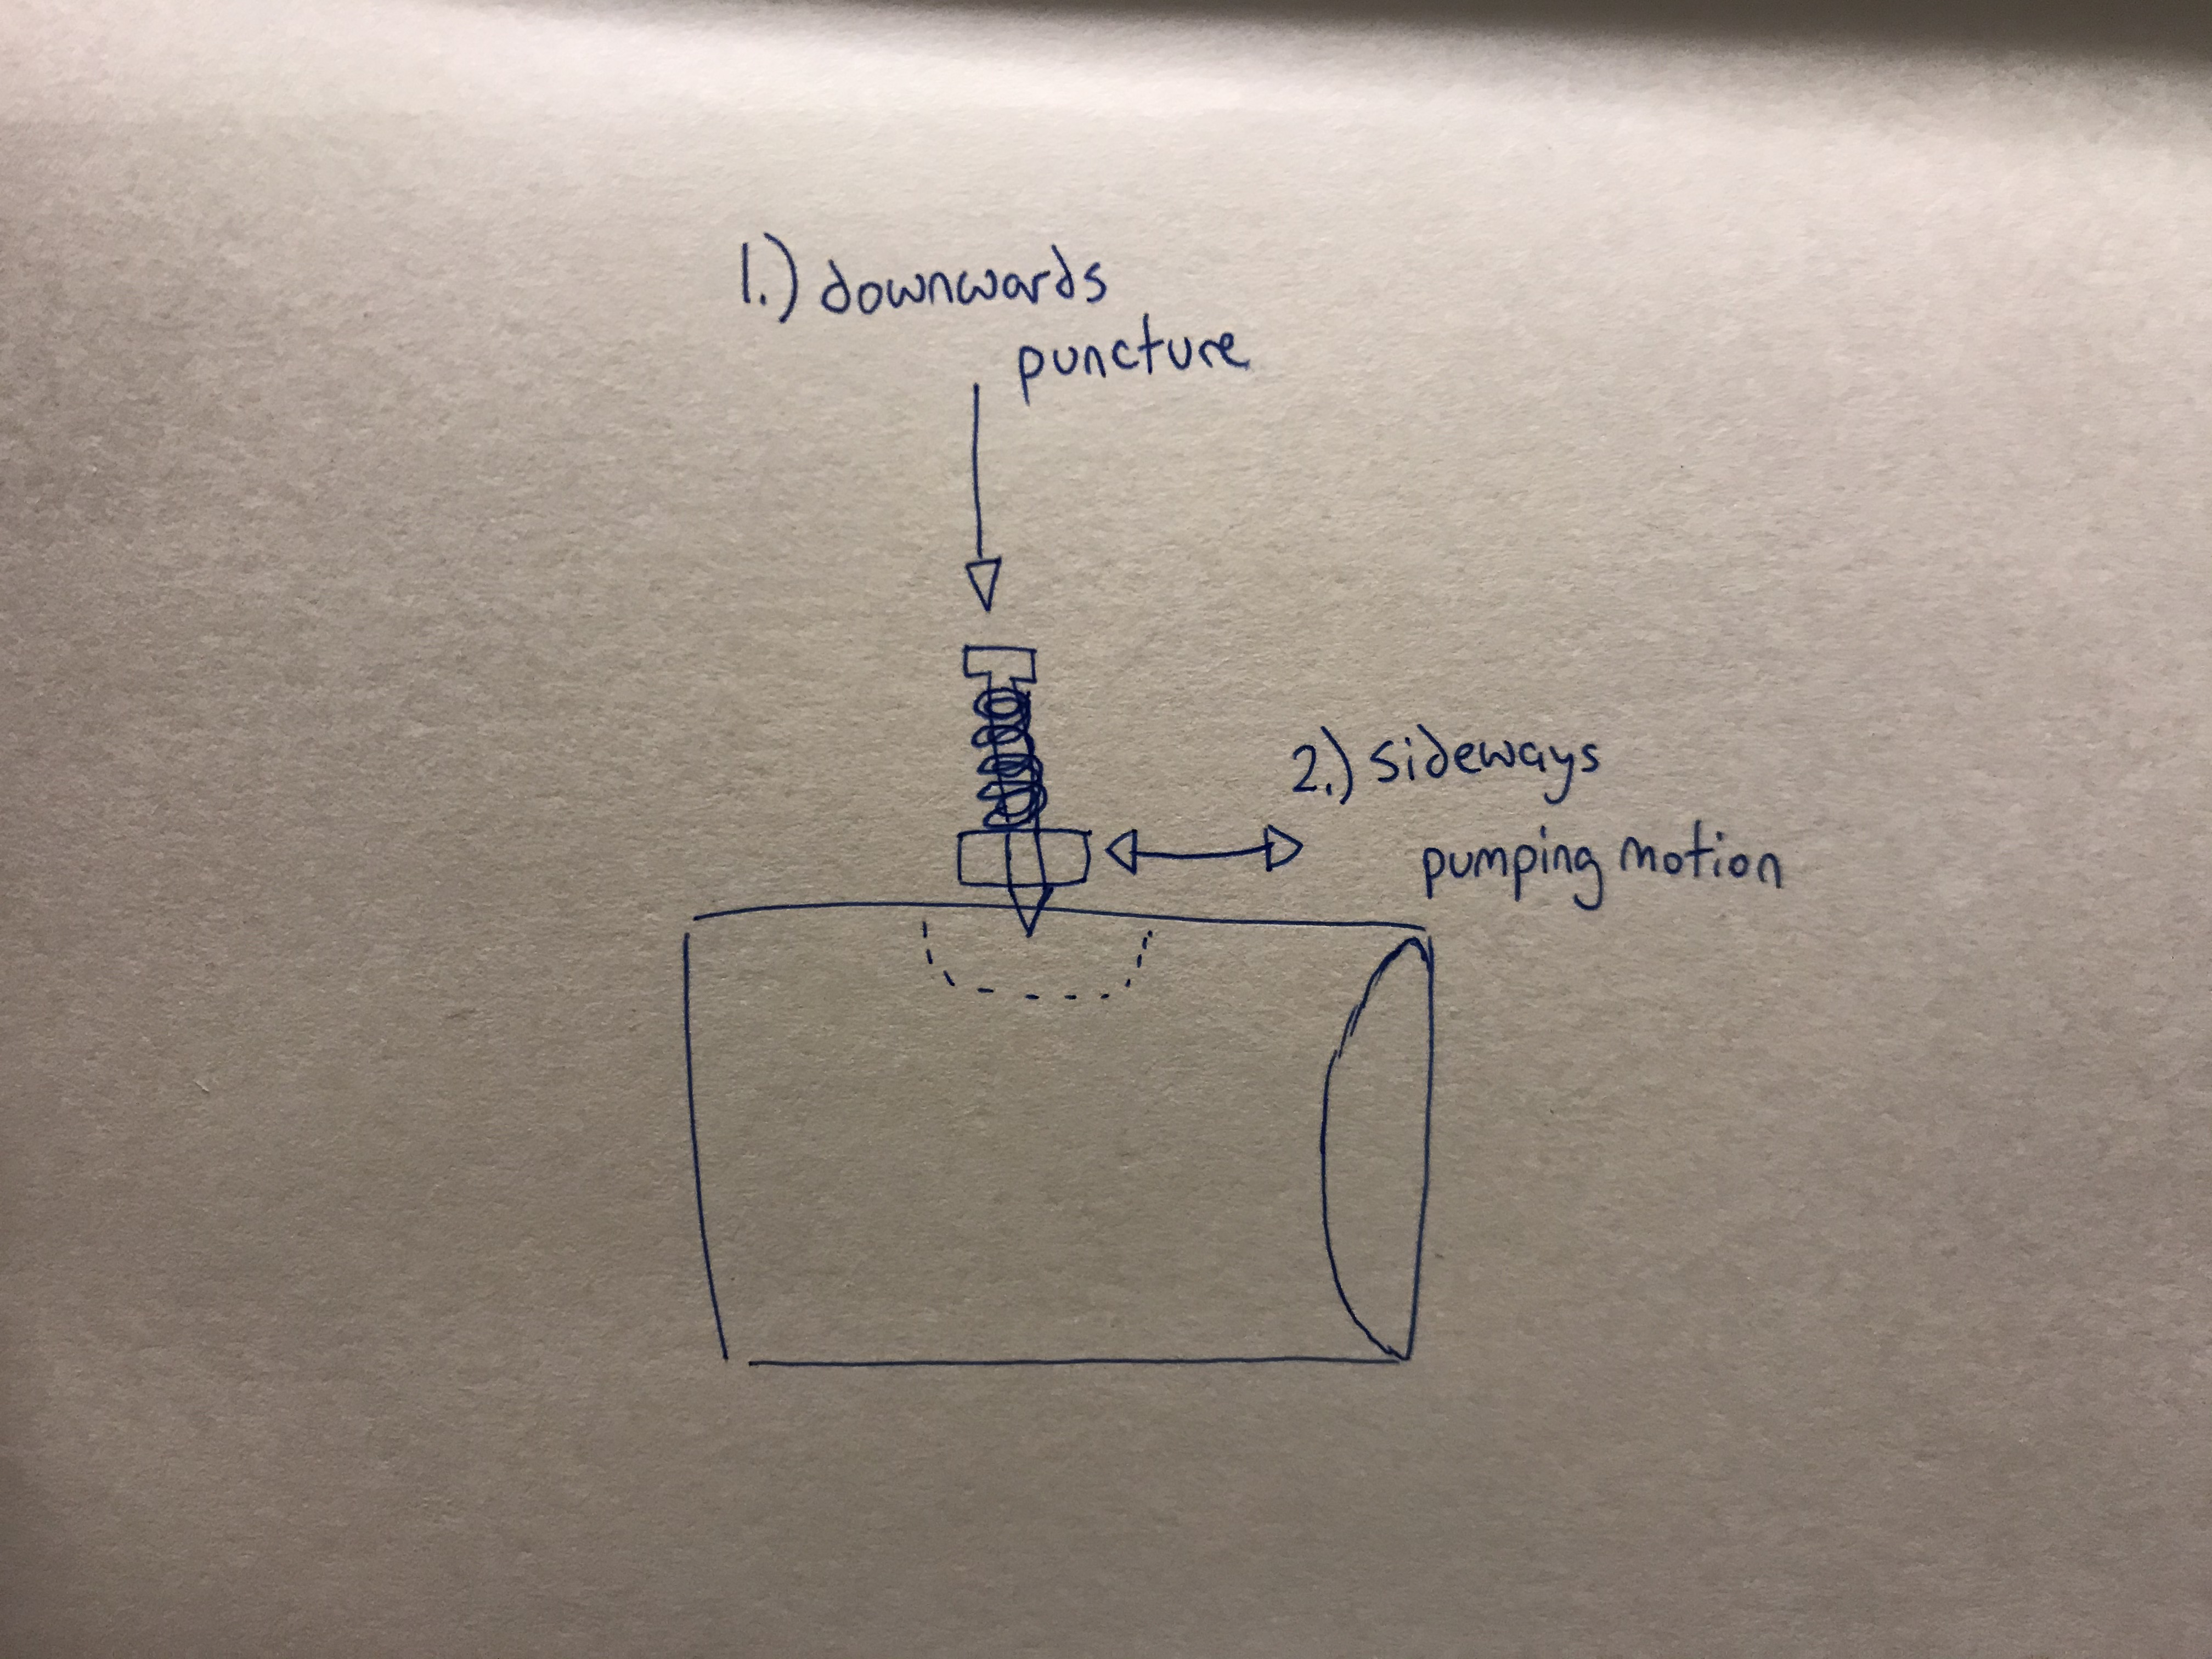 1.) downwards
puncture
2.) sideways
pumping motion